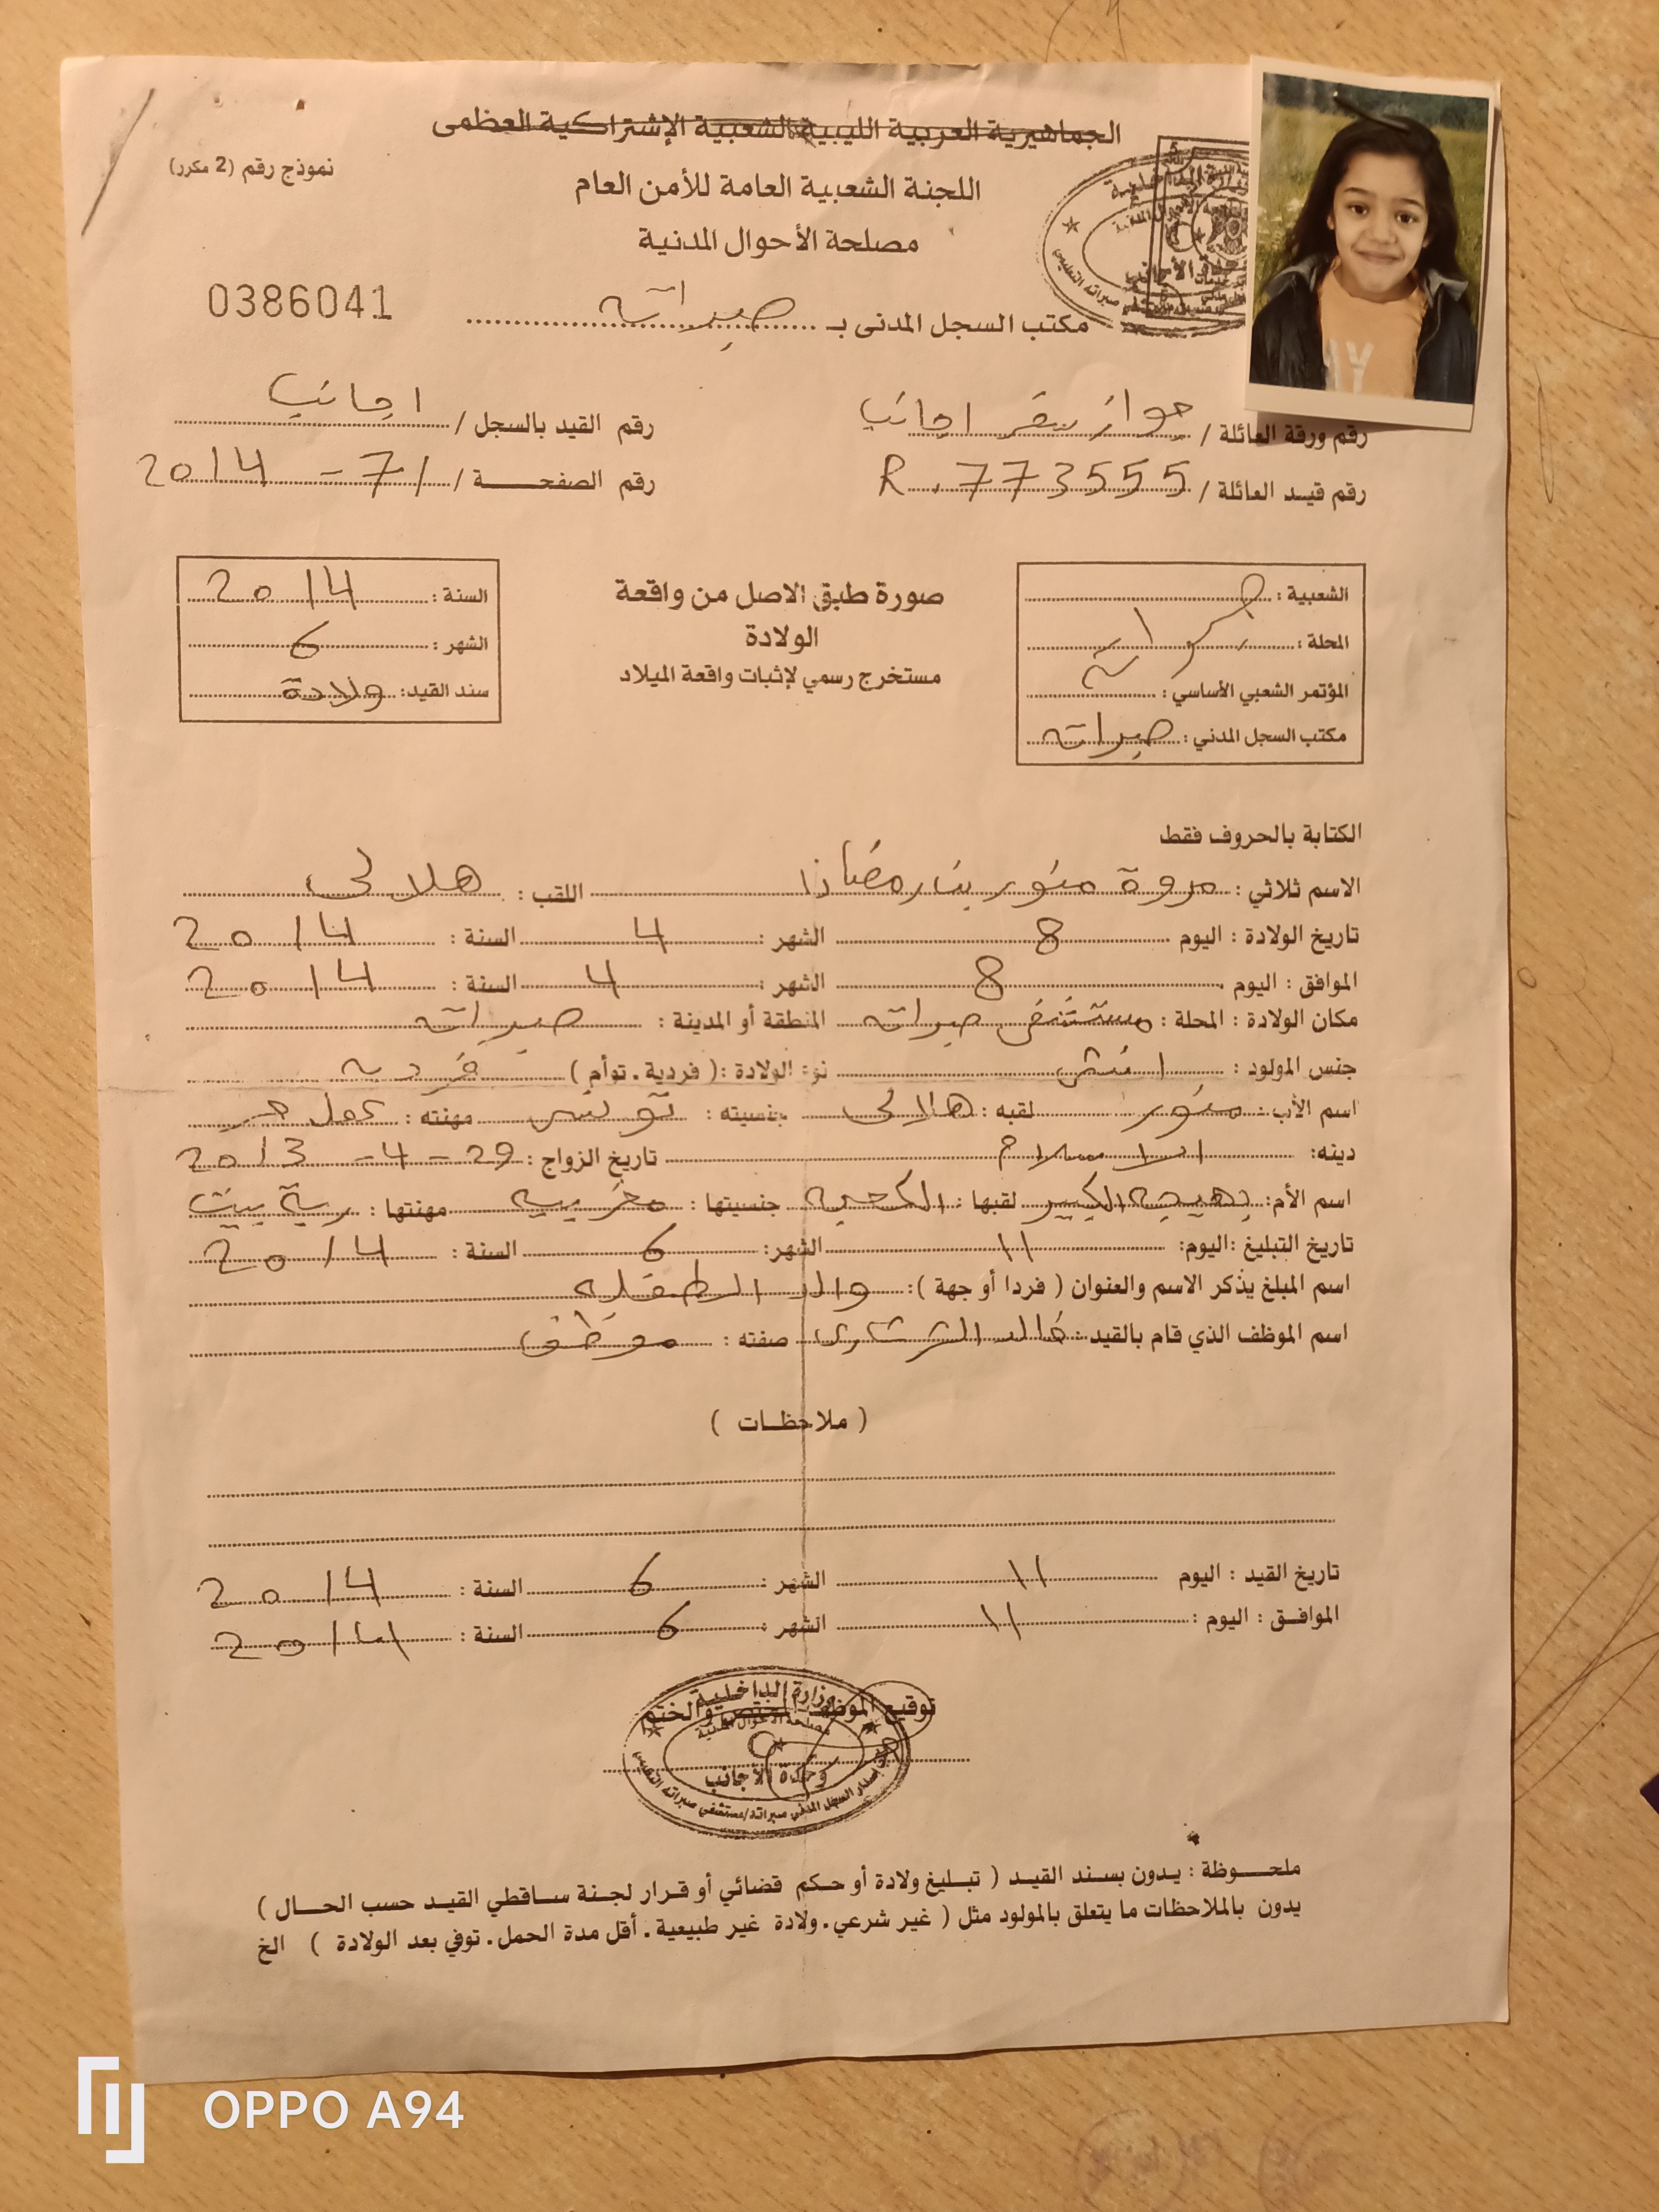 الجماهيرية العربية الليبية الشعبية الإشتراكية العظمى
نموذج رقم (2 مكرر)
اللجنة الشعبية العامة للأمن العام
مصلحة الأحوال المدنية
0386041
مكتب السجل المدنى بـ صبراته
رقم ورقة العائلة / جواز سفر اجانب رقم القيد بالسجل / اجانب
رقم قيد العائلة / R.773555 رقم الصفحة / 71 - 2014
الشعبية :
المحلة :
المؤتمر الشعبي الأساسي :
مكتب السجل المدني : صبراته
صورة طبق الاصل من واقعة
الولادة
مستخرج رسمي لإثبات واقعة الميلاد
السنة : 2014
الشهر : 6
سند القيد: ولادة
الكتابة بالحروف فقط
الاسم ثلاثي : مروة منور بن رمضان اللقب : هلالي
تاريخ الولادة : اليوم 8 الشهر : 4 السنة : 2014
الموافق : اليوم 8 الشهر : 4 السنة : 2014
مكان الولادة : المحلة : مستشفى صبراته المنطقة أو المدينة : صبراته
جنس المولود : انثى نوع الولادة : ( فردية . توأم ) فرديه
اسم الأب : منور لقبه : هلالي جنسيته : تونسي مهنته : عمل حر
دينه: الاسلام تاريخ الزواج : 29 - 4 - 2013
اسم الأم: بهيجه الكبير لقبها : جنسيتها : مغربيه مهنتها : ربة بيت
تاريخ التبليغ :اليوم: 11 الشهر: 6 السنة : 2014
اسم المبلغ يذكر الاسم والعنوان ( فردا أو جهة ): والد الطفله
اسم الموظف الذي قام بالقيد : خالد صفته : موظف
( ملاحظات )
تاريخ القيد : اليوم 11 الشهر : 6 السنة : 2014
الموافق : اليوم : 11 الشهر : 6 السنة : 2014
توقيع الموظف المختص والختم
وزارة الداخلية
مصلحة الأحوال المدنية
وحدة الأجانب
مكتب إصدار السجل المدني صبراتة/مستشفى صبراتة التعليمي
ملحوظة : يدون بسند القيد ( تبليغ ولادة أو حكم قضائي أو قرار لجنة ساقطي القيد حسب الحال )
يدون بالملاحظات ما يتعلق بالمولود مثل ( غير شرعي . ولادة غير طبيعية . أقل مدة الحمل . توفي بعد الولادة ) الخ
OPPO A94